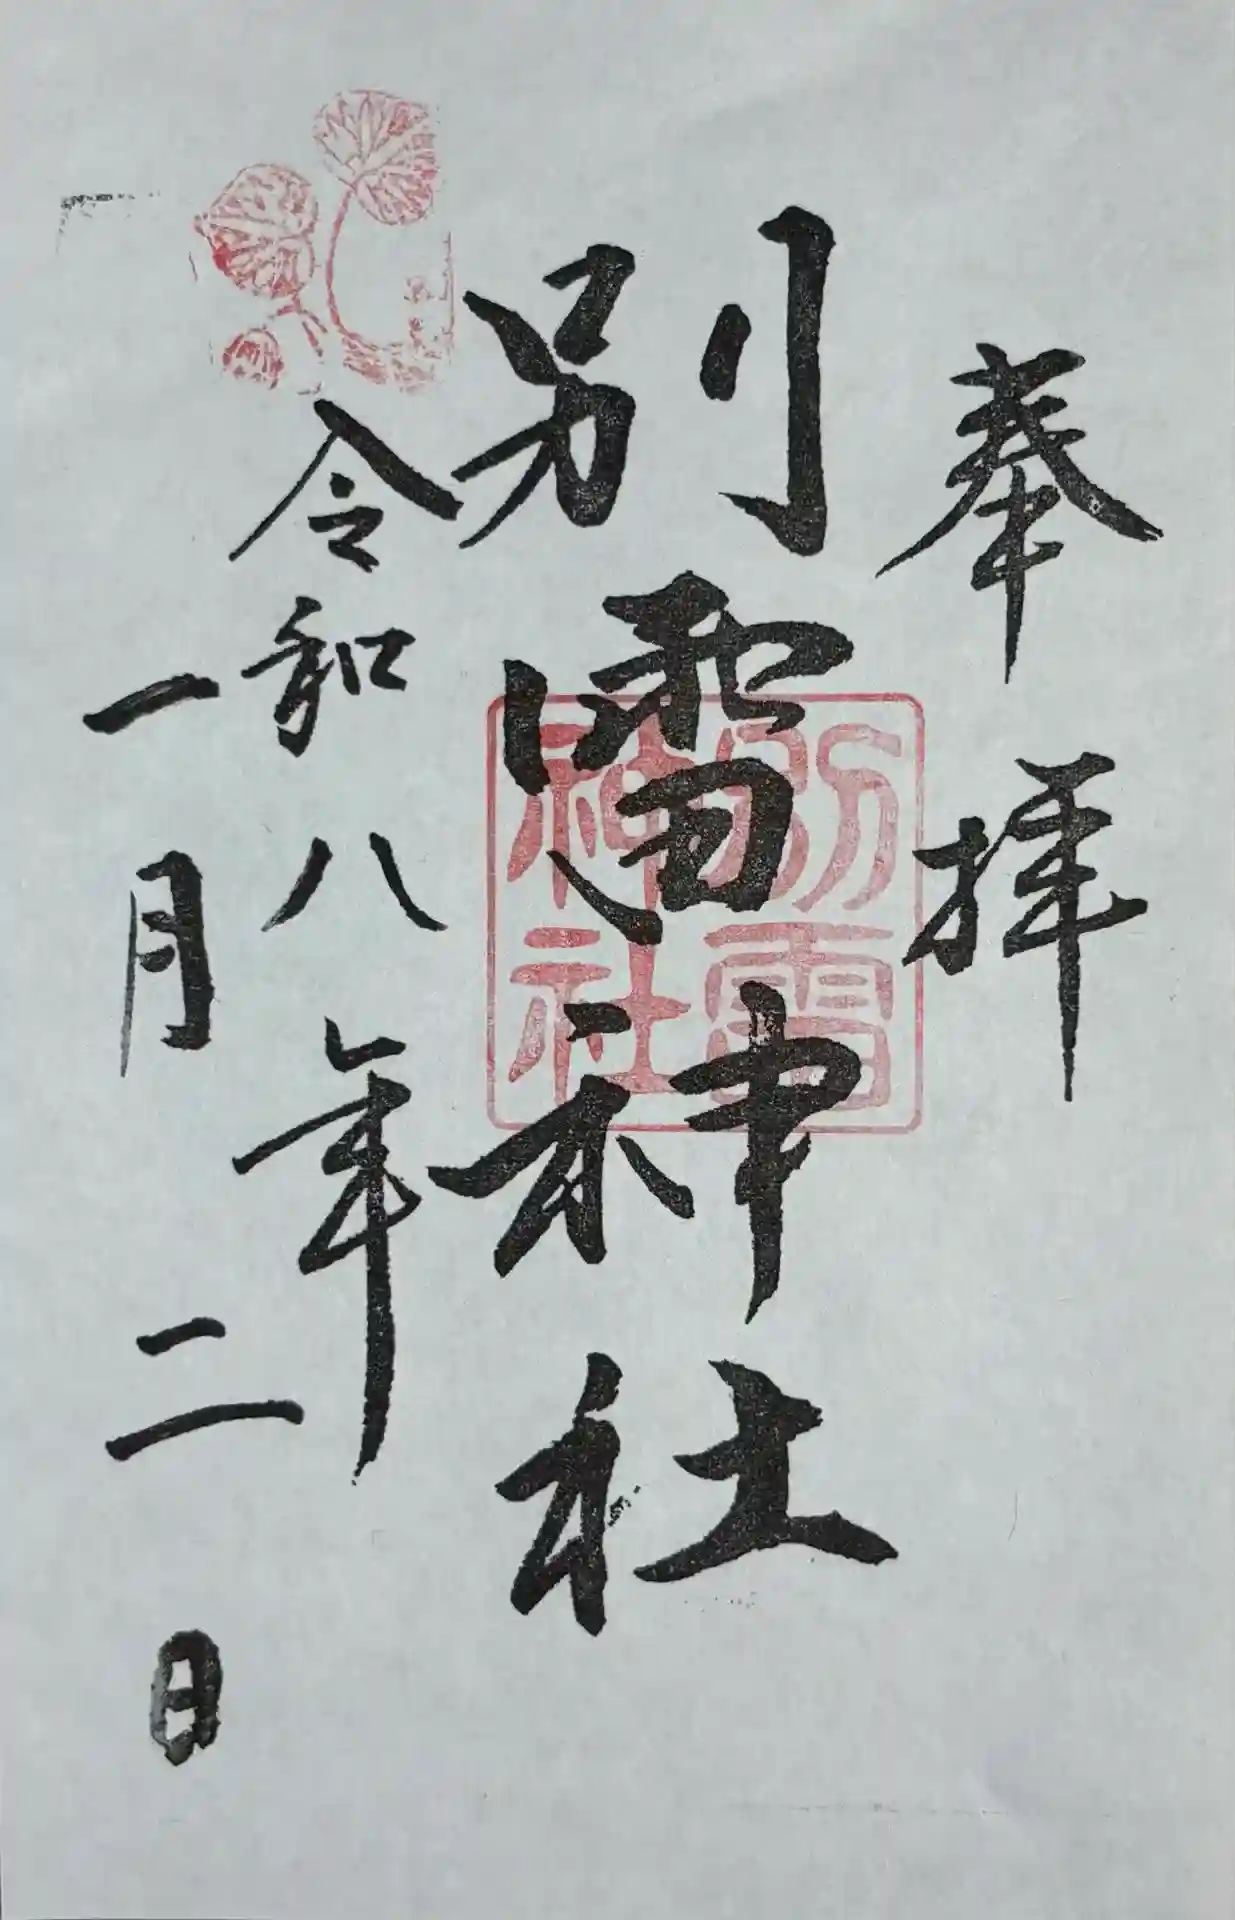 奉拝
別雷神社
別雷
神社
令和八年
一月二日